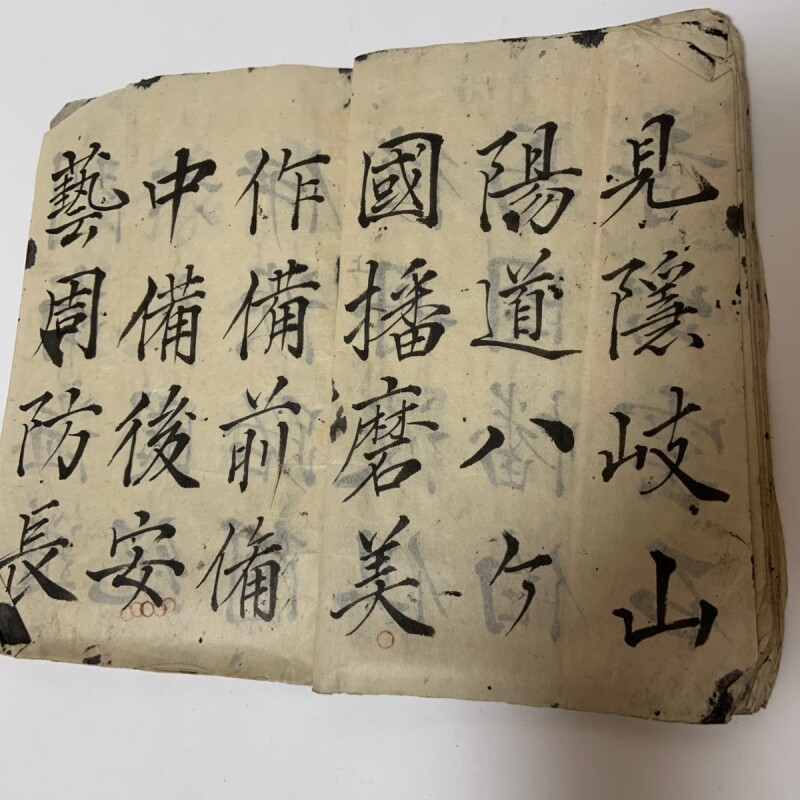 見隱岐山
陽道八ケ
國播磨美
作備前備
中備後安
藝周防長